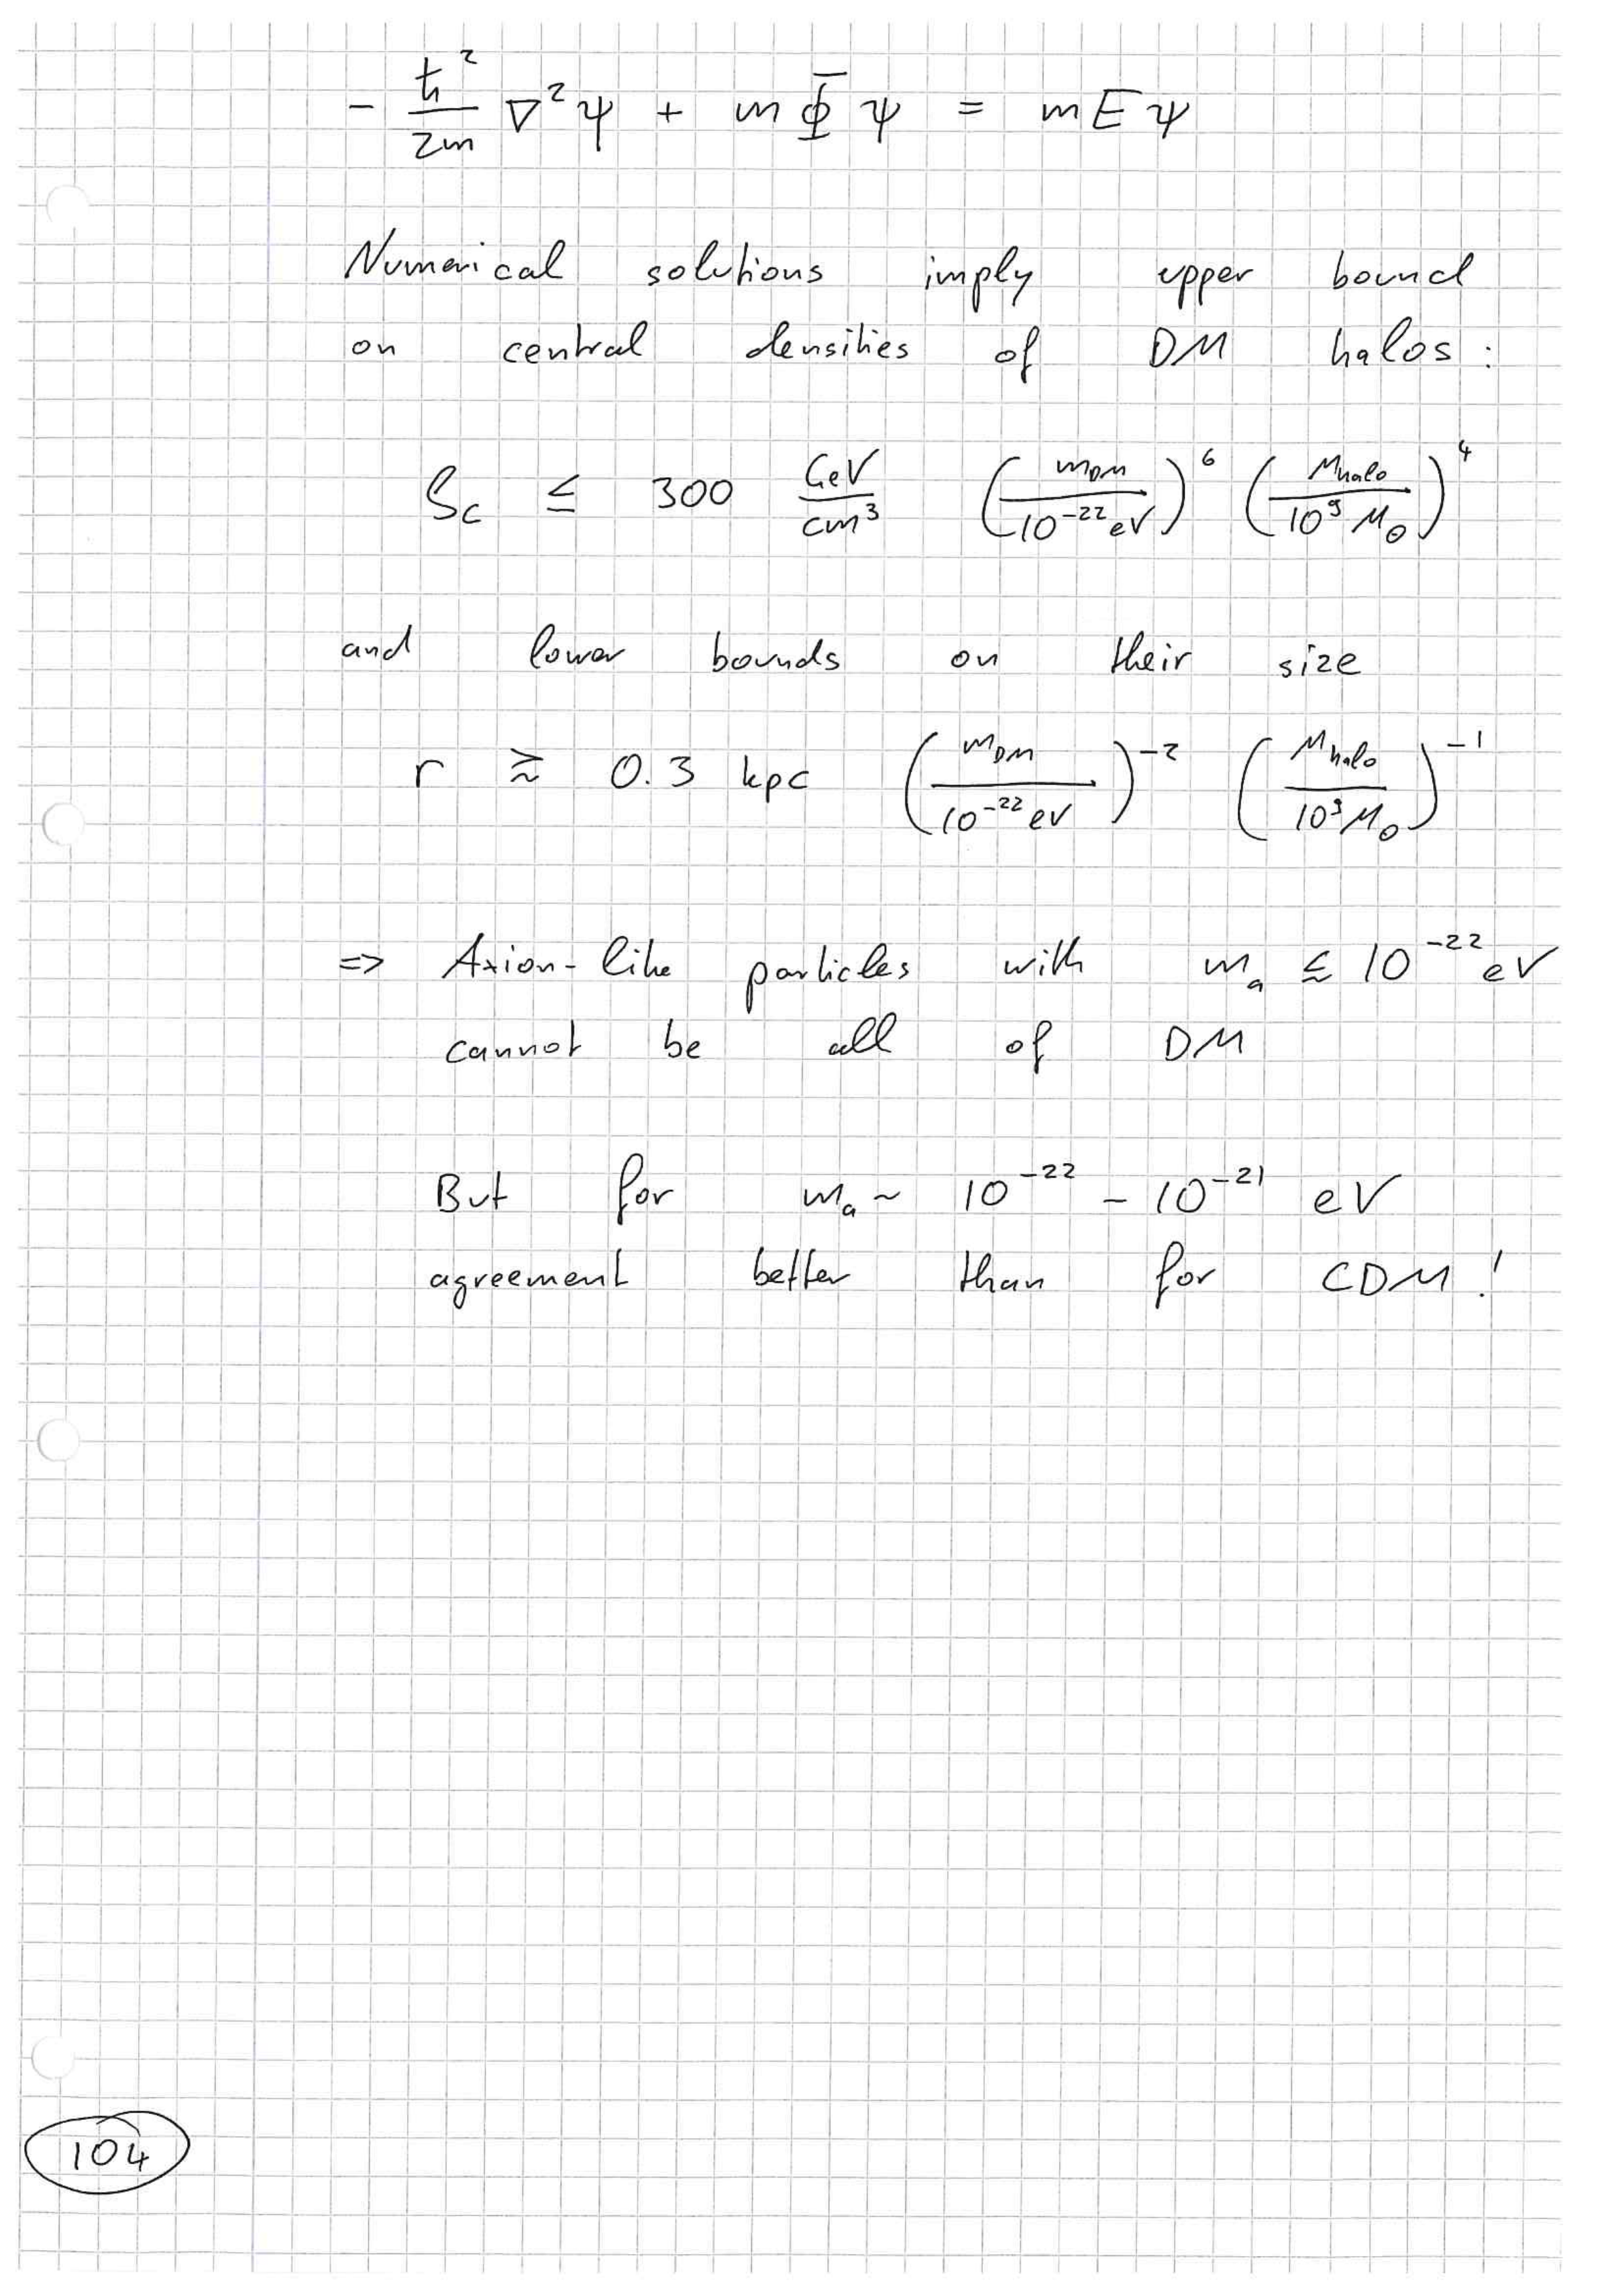 - ħ²/2m ∇²ψ + m Φ ψ = m E ψ
Numerical solutions imply upper bound
on central densities of DM halos:
ρ_c ≤ 300 GeV/cm³ (m_DM/10⁻²² eV)⁶ (M_halo/10⁹ M_⊙)⁴
and lower bounds on their size
r ≳ 0.3 kpc (m_DM/10⁻²² eV)⁻² (M_halo/10⁹ M_⊙)⁻¹
=> Axion-like particles with m_a ≲ 10⁻²² eV
cannot be all of DM
But for m_a ~ 10⁻²² – 10⁻²¹ eV
agreement better than for CDM!
104